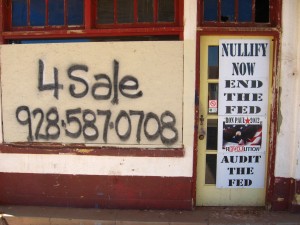 4 Sale
928-587-0708
NULLIFY
NOW
END
THE
FED
RON PAUL★2012
REVOLUTION
AUDIT
THE
FED